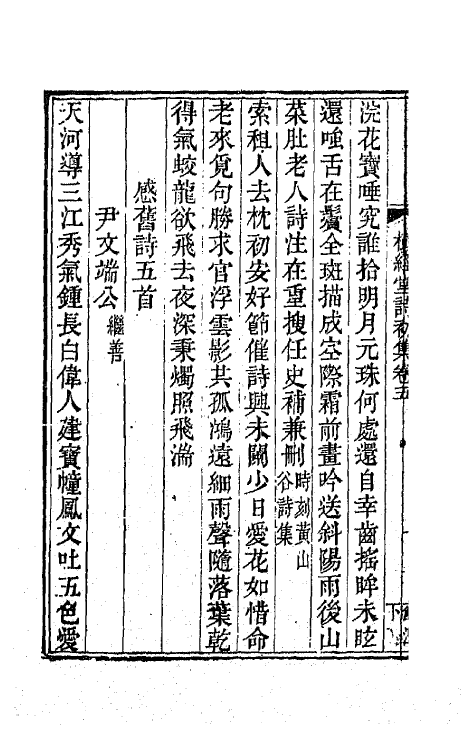 浣花寶唾究誰拾明月元珠何處還自幸齒搖眸未眩
還嗤舌在鬢全斑描成空際霜前畫吟送斜陽雨後山
菜肚老人詩注在重搜任史補兼刪時刻黃山谷詩集
索租人去枕初安好節催詩興未闌少日愛花如惜命
老來覓句勝求官浮雲影共孤鴻遠細雨聲隨落葉乾
得氣蛟龍欲飛去夜深秉燭照飛湍
感舊詩五首
尹文端公繼善
天河導三江秀氣鍾長白偉人建寶幢鳳文吐五色愛
經堂詩初集卷五